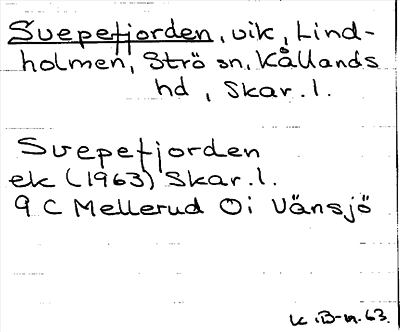 Svepefjorden, vik, Lind-
holmen, Strö sn, Kållands
hd, Skar.l.
Svepefjorden
ek (1963) Skar.l.
9 C Mellerud Oi Vänsjö
K.B-n.63.